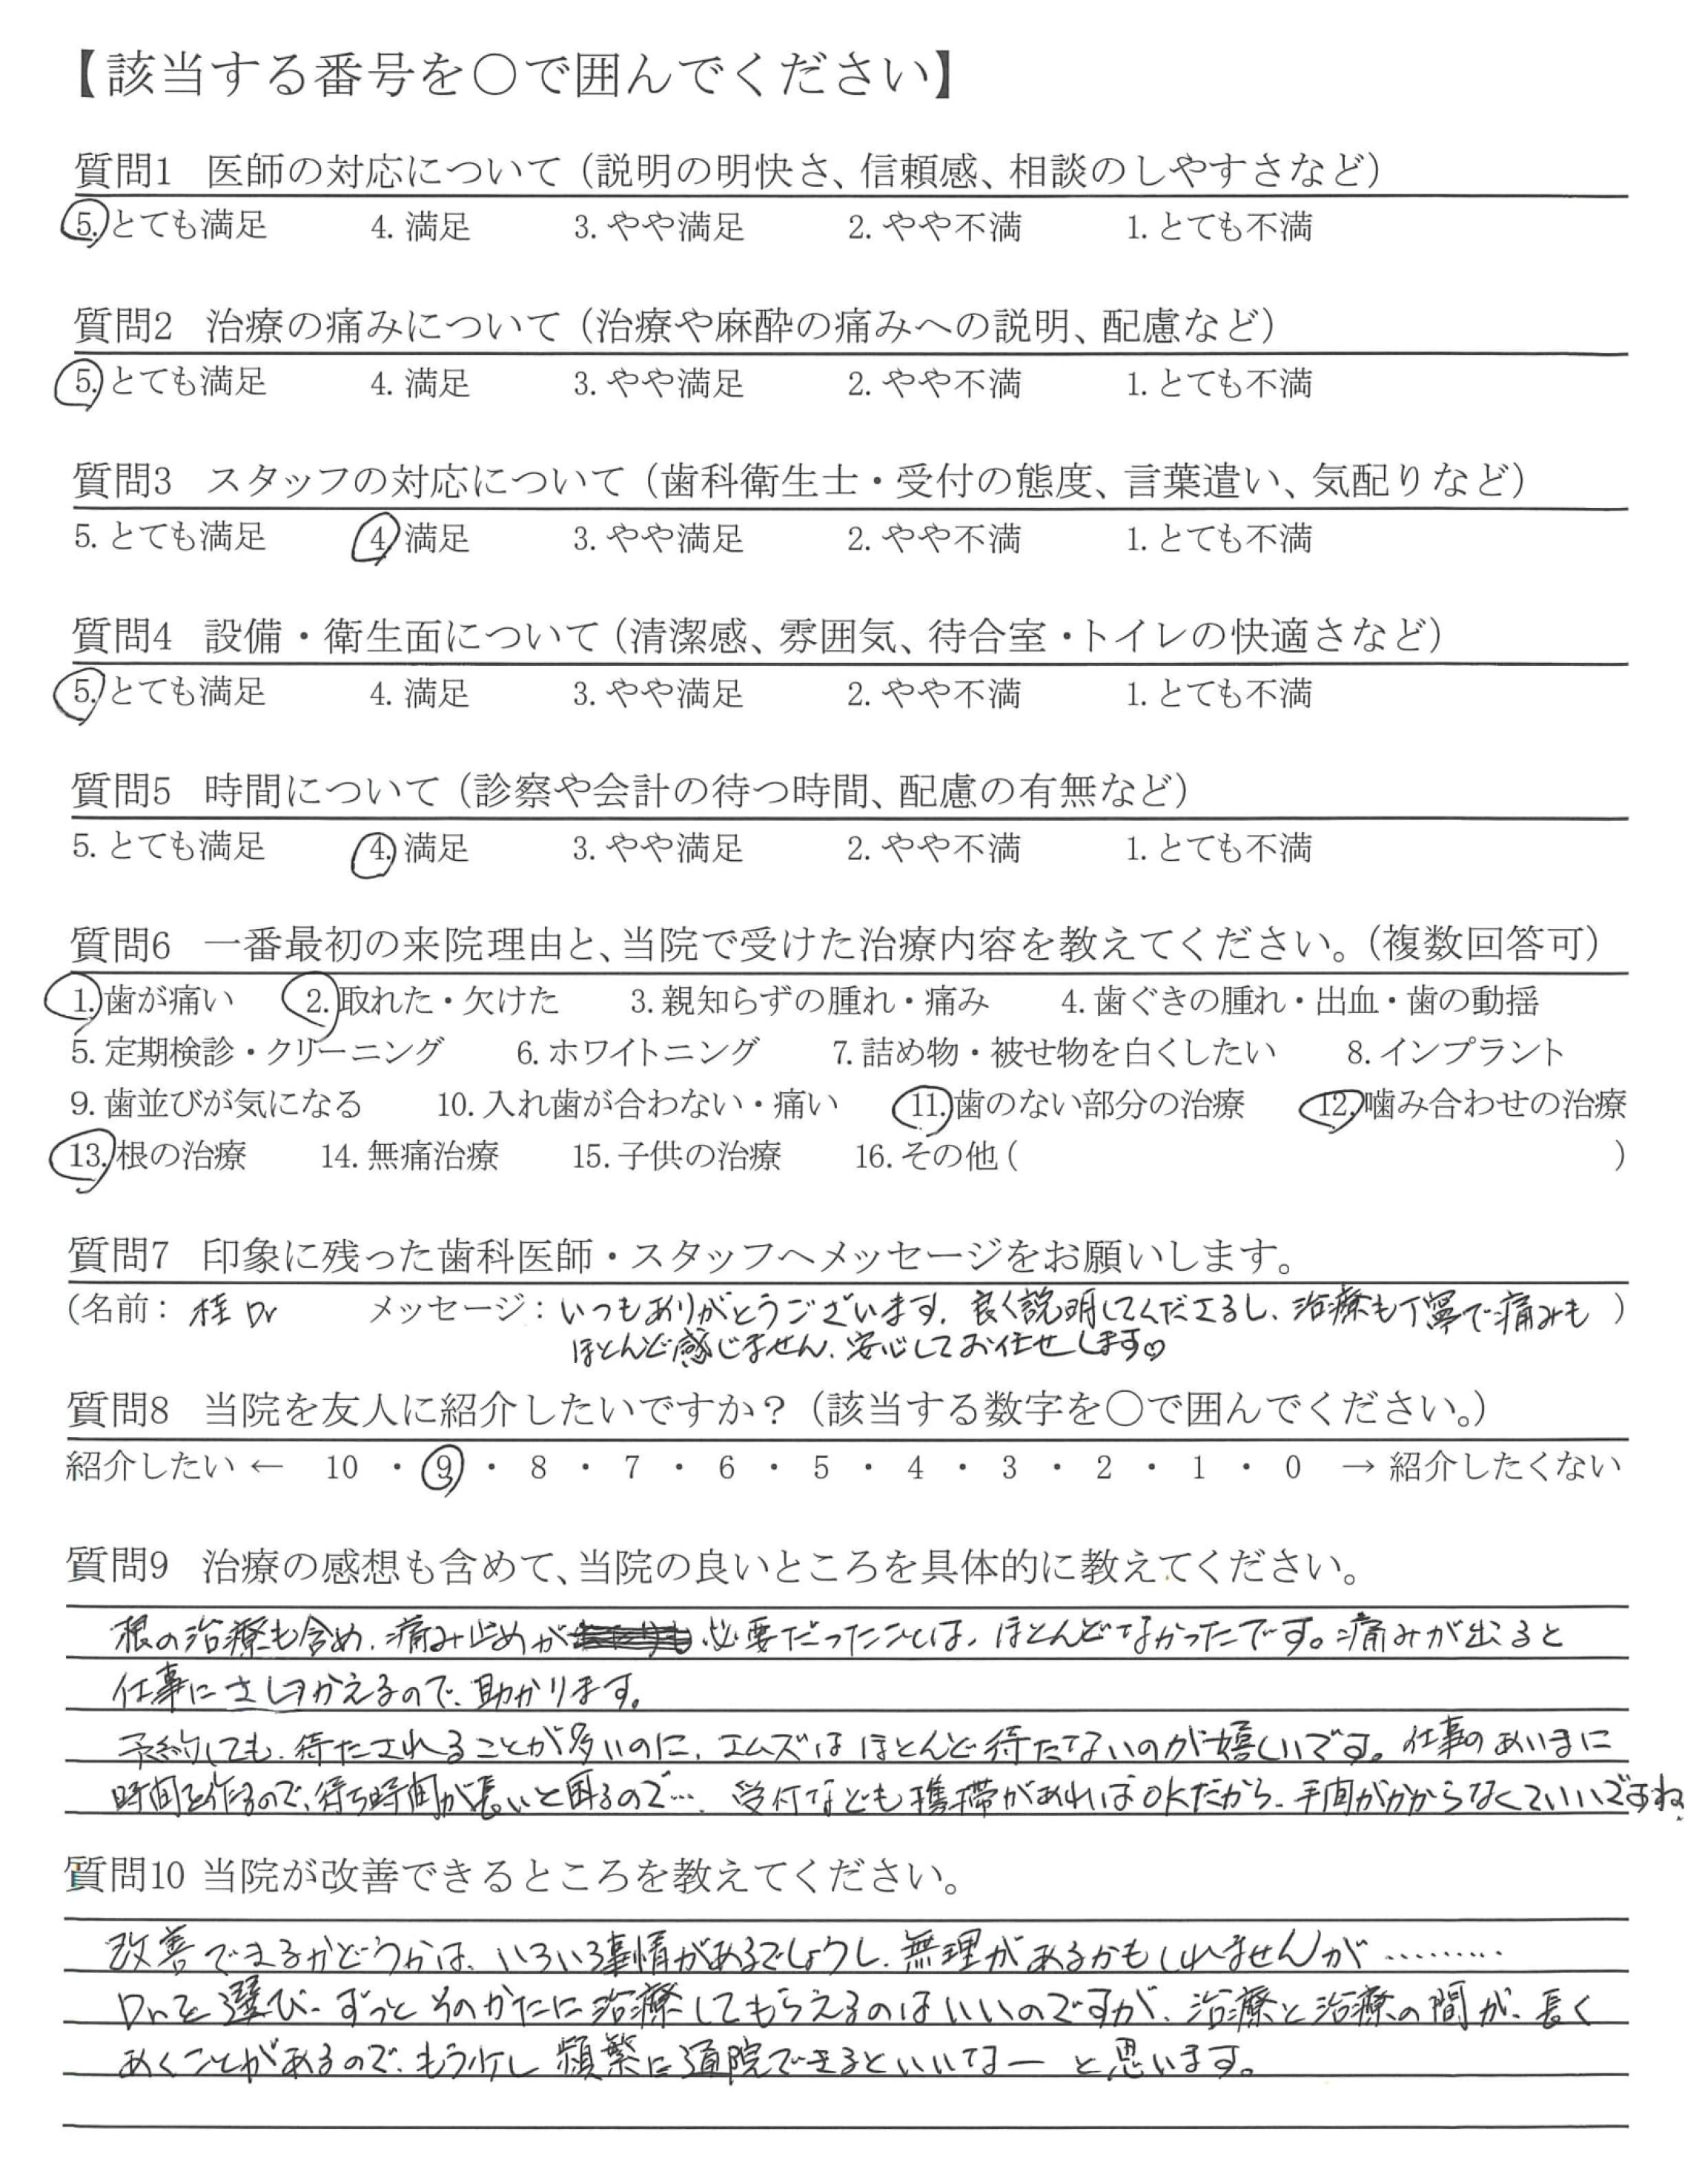 【該当する番号を○で囲んでください】
質問1 医師の対応について（説明の明快さ、信頼感、相談のしやすさなど）
5. とても満足 4. 満足 3. やや満足 2. やや不満 1. とても不満
質問2 治療の痛みについて（治療や麻酔の痛みへの説明、配慮など）
5. とても満足 4. 満足 3. やや満足 2. やや不満 1. とても不満
質問3 スタッフの対応について（歯科衛生士・受付の態度、言葉遣い、気配りなど）
5. とても満足 4. 満足 3. やや満足 2. やや不満 1. とても不満
質問4 設備・衛生面について（清潔感、雰囲気、待合室・トイレの快適さなど）
5. とても満足 4. 満足 3. やや満足 2. やや不満 1. とても不満
質問5 時間について（診察や会計の待つ時間、配慮の有無など）
5. とても満足 4. 満足 3. やや満足 2. やや不満 1. とても不満
質問6 一番最初の来院理由と、当院で受けた治療内容を教えてください。（複数回答可）
1. 歯が痛い 2. 取れた・欠けた 3. 親知らずの腫れ・痛み 4. 歯ぐきの腫れ・出血・歯の動揺
5. 定期検診・クリーニング 6. ホワイトニング 7. 詰め物・被せ物を白くしたい 8. インプラント
9. 歯並びが気になる 10. 入れ歯が合わない・痛い 11. 歯のない部分の治療 12. 噛み合わせの治療
13. 根の治療 14. 無痛治療 15. 子供の治療 16. その他（ ）
質問7 印象に残った歯科医師・スタッフへメッセージをお願いします。
（名前： 桂 Dr メッセージ：いつもありがとうございます。良く説明してくださるし、治療も丁寧で痛みも ）
ほとんど感じません。安心してお任せします♡
質問8 当院を友人に紹介したいですか？（該当する数字を○で囲んでください。）
紹介したい ← 10 ・ 9 ・ 8 ・ 7 ・ 6 ・ 5 ・ 4 ・ 3 ・ 2 ・ 1 ・ 0 → 紹介したくない
質問9 治療の感想も含めて、当院の良いところを具体的に教えてください。
根の治療も含め、痛み止めが必要だったことは、ほとんどなかったです。痛みが出ると
仕事にさしつかえるので、助かります。
予約しても、待たされることが多いのに、エムズはほとんど待たないのが嬉しいです。仕事のあいまに
時間を作るので、待ち時間が長いと困るので…。受付なども携帯があればOKだから、手間がかからなくていいですね。
質問10 当院が改善できるところを教えてください。
改善できるかどうかは、いろいろ事情があるでしょうし、無理があるかもしれませんが………
Dr.を選び、ずっとそのかたに治療してもらえるのはいいのですが、治療と治療の間が、長く
あくことがあるので、もう少し頻繁に通院できるといいなー と思います。